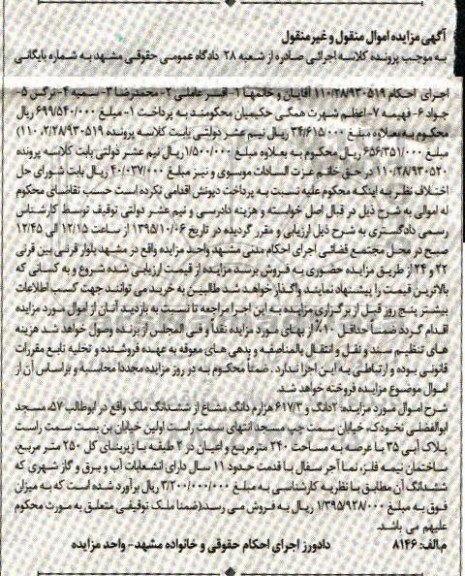 آگهی مزایده اموال منقول و غیرمنقول
به موجب پرونده کلاسه اجرائی صادره از شعبه ۲۸ دادگاه عمومی حقوقی مشهد به شماره بایگانی
اجرای احکام ۱۱۰/۲۸/۹۳۰۵۱۹ آقایان و خانمها ۱- افسر عاملی ۲- محمدرضا ۳- سمیه ۴- نرگس ۵-
جواد ۶- فهیمه ۷- اعظم شهرت همگی حکیمیان محکومند به پرداخت ۱- مبلغ ۶۹۹/۵۴۰/۰۰۰ ریال
محکوم به بعلاوه مبلغ ۳۴/۶۱۵/۰۰۰ ریال نیم عشر دولتی بابت کلاسه پرونده ۱۱۰/۲/۲۸/۹۳۰۵۱۹)
مبلغ ۶۵۶/۳۵۱/۰۰۰ ریال محکوم به بعلاوه مبلغ ۱/۵۰۰/۰۰۰ ریال نیم عشر دولتی بابت کلاسه پرونده
۱۱۰/۲۸/۹۳۰۵۲۰ در حق خانم عزت السادات موسوی و نیز مبلغ ۴۰/۰۳۷/۰۰۰ ریال بابت شورای حل
اختلاف نظر به اینکه محکوم علیه نسبت به پرداخت دیونش اقدامی نکرده است حسب تقاضای محکوم
له اموالی به شرح ذیل در قبال اصل خواسته و هزینه دادرسی و نیم عشر دولتی توقیف توسط کارشناس
رسمی دادگستری به شرح ذیل ارزیابی و مقرر گردیده در تاریخ ۱۳۹۵/۱۰/۰۶ از ساعت ۱۲/۱۵ الی ۱۲/۴۵
صبح در محل مجتمع قضائی اجرای احکام مدنی مشهد واحد مزایده واقع در مشهد بلوار قرنی بین قرنی
۲۲ و ۲۴ از طریق مزایده حضوری به فروش برسد مزایده از قیمت ارزیابی شده شروع و به کسانی که
بالاترین قیمت را پیشنهاد نمایند واگذار خواهد شد طالبین به خرید می توانند جهت کسب اطلاعات
بیشتر پنج روز قبل از برگزاری مزایده به این اجرا مراجعه تا نسبت به بازدید آنان از اموال مورد مزایده
اقدام گردد ضمناً حداقل ۱۰٪ از بهای مورد مزایده نقداً و فی المجلس از برنده وصول خواهد شد هزینه
های تنظیم سند و نقل و انتقال بالمناصفه و بدهی های معوقه به عهده فروشنده و تخلیه تابع مقررات
قانونی بوده و ارتباطی به این اجرا ندارد. ضمناً محکوم به در روز مزایده مجددا محاسبه و براساس آن از
اموال موضوع مزایده فروخته خواهد شد.
شرح اموال مورد مزایده: ۲دانگ و ۶۱۷/۳ هزارم دانگ مشاع از ششدانگ ملک واقع در ابوطالب ۵۷، مسجد
ابوالفضلی نخودک، خیابان سمت چپ مسجد انتهای سمت راست اولین خیابان بن بست سمت راست
پلاک آبی ۳۵ با عرصه به مساحت ۳۴۰ مترمربع و اعیان در ۲ طبقه با زیربنای کل ۲۵۰ متر مربع،
ساختمان نیمه فلز، نما آجر سفال با قدمت حدود ۱۱ سال دارای انشعابات آب و برق و گاز شهری که
ششدانگ آن مطابق با نظریه کارشناسی به مبلغ ۳/۲۰۰/۰۰۰/۰۰۰ ریال برآورد شده است که به میزان
فوق به مبلغ ۱/۳۹۵/۹۲۸/۰۰۰ ریال به فروش می رسد(ضمنا ملک توقیفی متعلق به مورث محکوم
علیهم می باشد.
م.الف: ۸۱۴۶ دادورز اجرای احکام حقوقی و خانواده مشهد- واحد مزایده